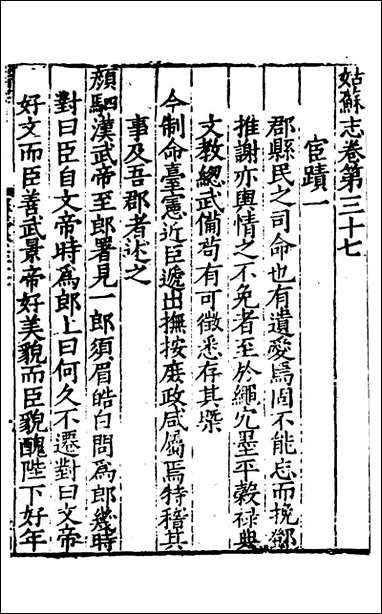 姑蘇志卷第三十七
宦蹟一
郡縣民之司命也有遺愛焉固不能忘而挽鄧
推謝亦輿情之不免者至於繩冗墨平穀祿典
文教總武備苟有可徵悉存其槩
今制命臺憲近臣遞出撫按庶政咸屬焉特稽其
事及吾郡者述之
顏駟漢武帝至郎署見一郎須眉皓白問爲郎幾時
對曰臣自文帝時爲郎上曰何久不遷對曰文帝
好文而臣善武景帝好美貌而臣貌醜陛下好年